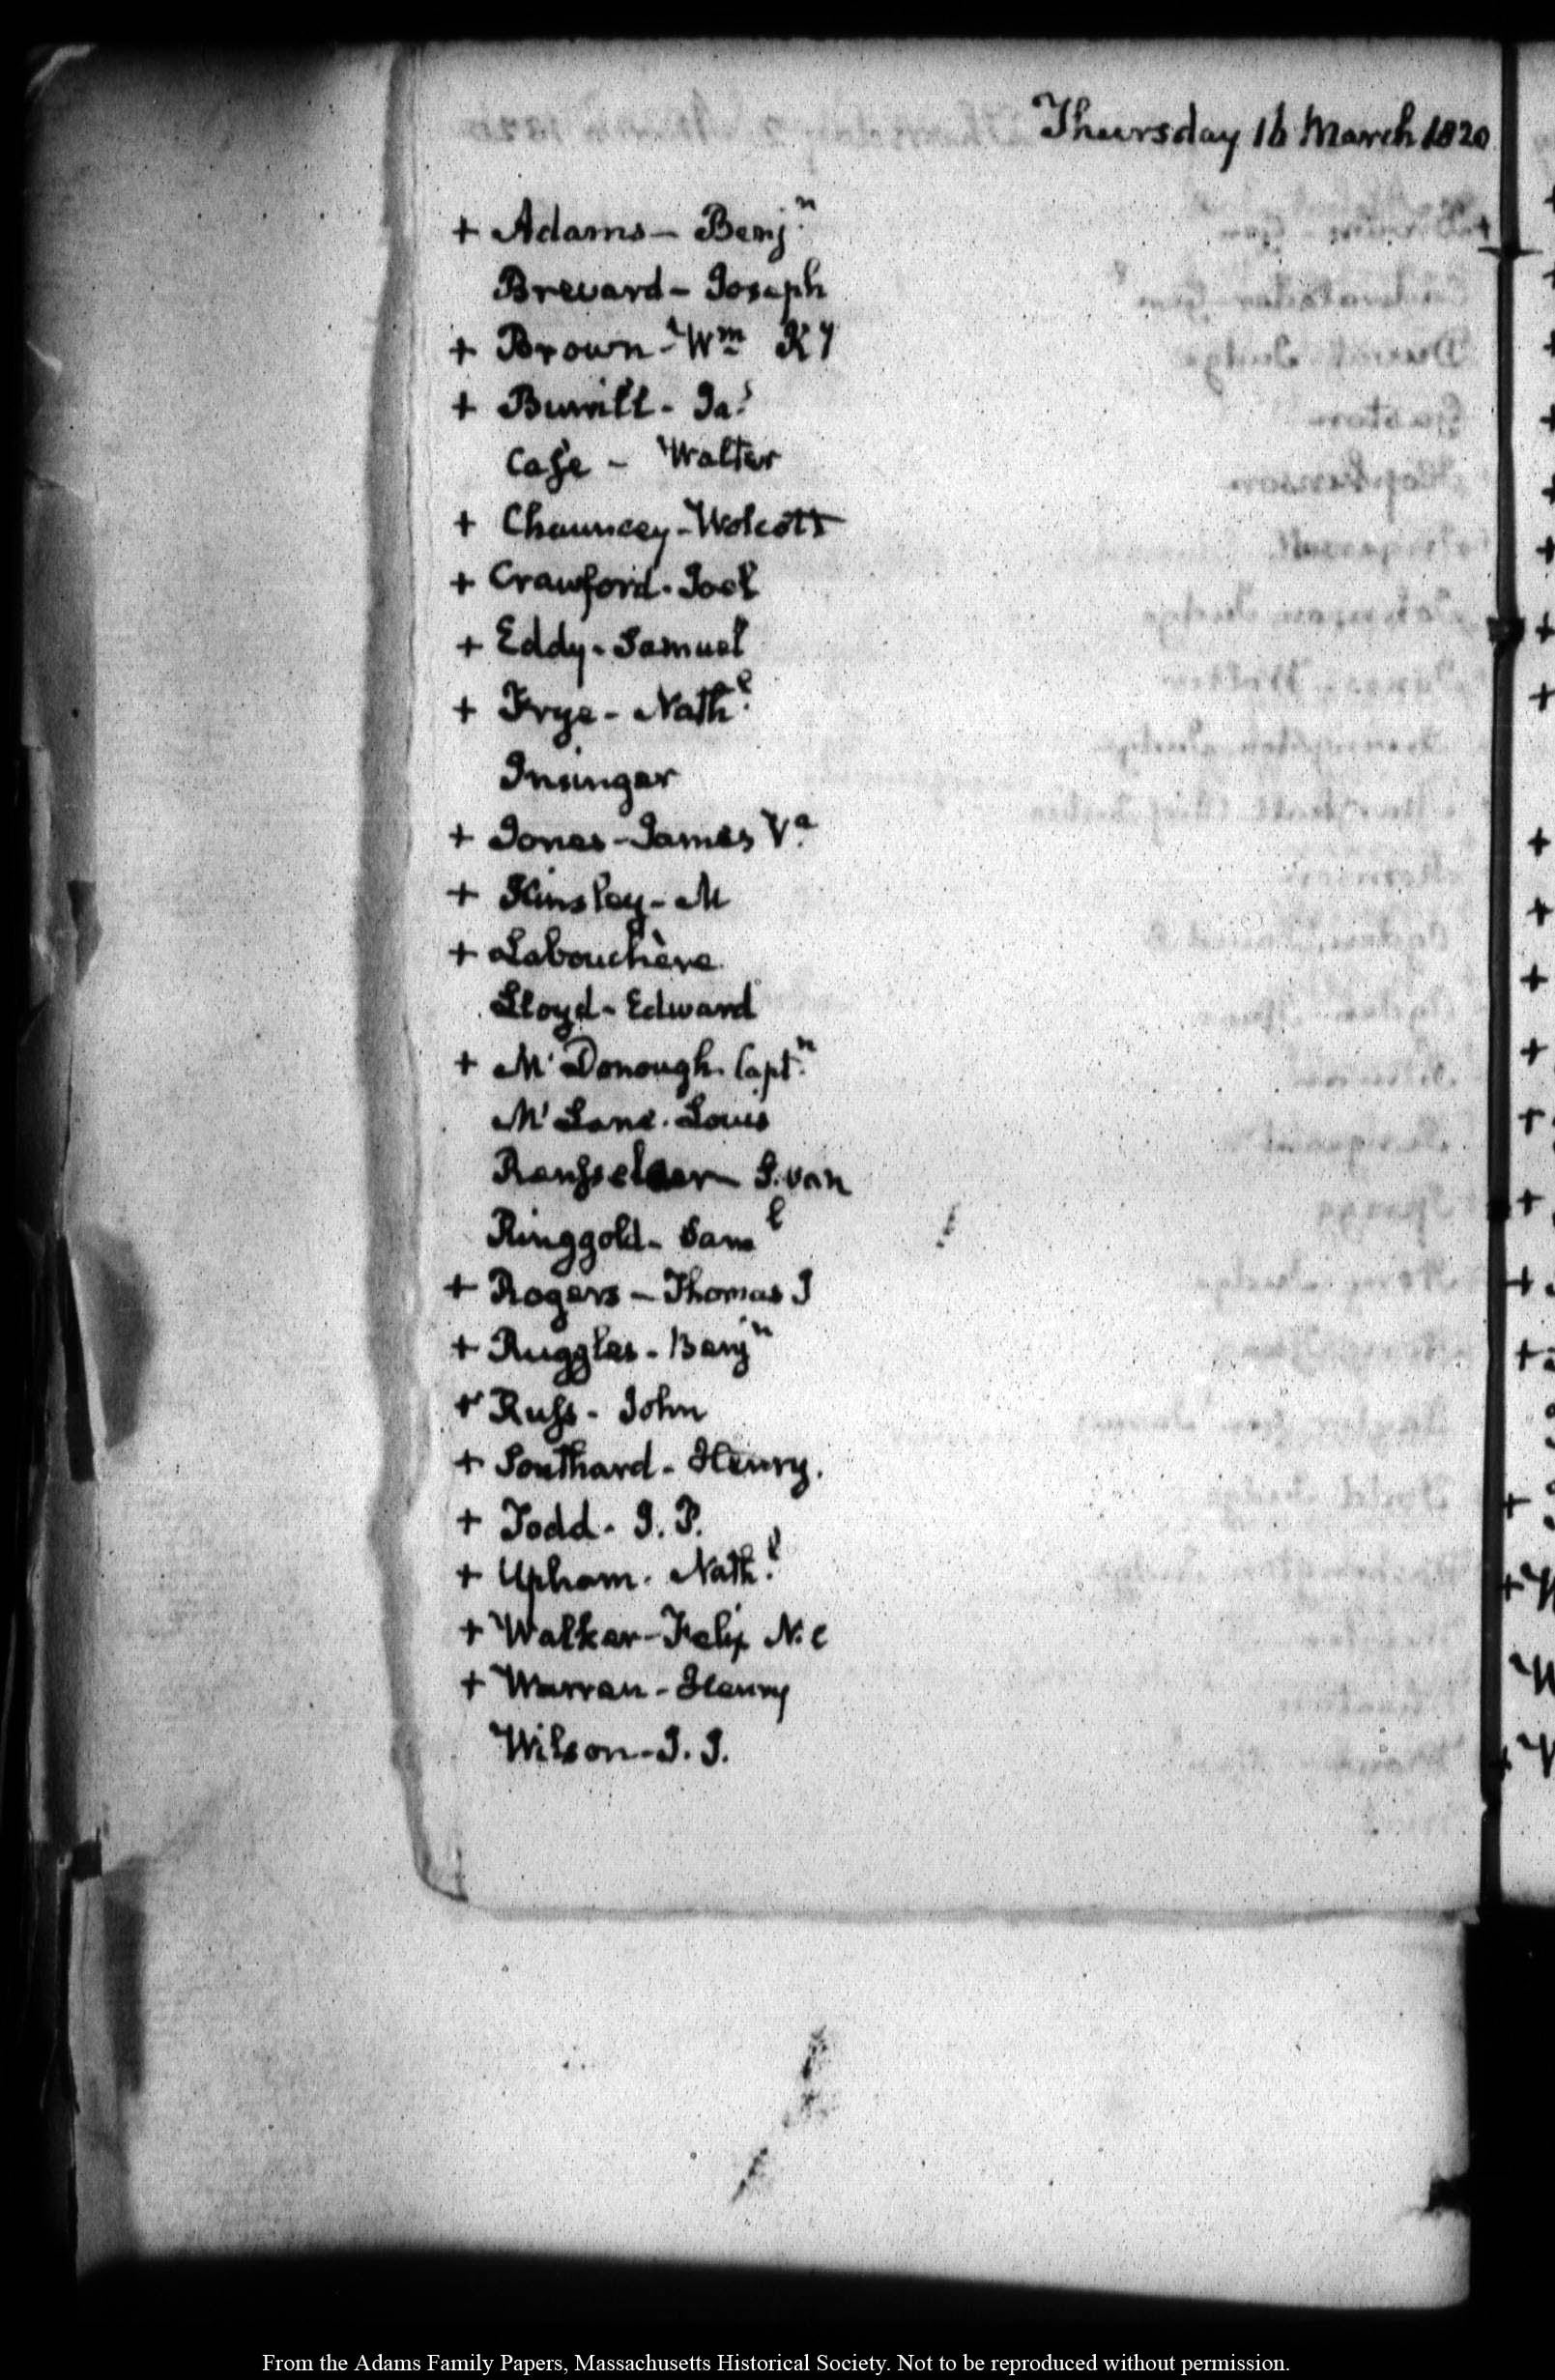 Thursday 16 March 1820
+ Adams – Benjn.
Brevard – Joseph
+ Brown – Wm Ky
+ Burrill – Jas.
Case – Walter
+ Chauncey – Wolcott
+ Crawford – Joel
+ Eddy – Samuel
+ Frye – Nathl.
Insinger
+ Jones – James Va.
+ Kinsley – M
+ Labouchère
Lloyd – Edward
+ Mc Donough. Captn.
Mc Lane. Louis
Rensselaer – S. van
Ringgold – Saml
+ Rogers – Thomas J
+ Ruggles – Benjn
+ Russ – John
+ Southard – Henry.
+ Todd – J. P.
+ Upham. Nathl.
+ Walker – Felix N. C
+ Warren – Henry
Wilson – J. J.
From the Adams Family Papers, Massachusetts Historical Society. Not to be reproduced without permission.